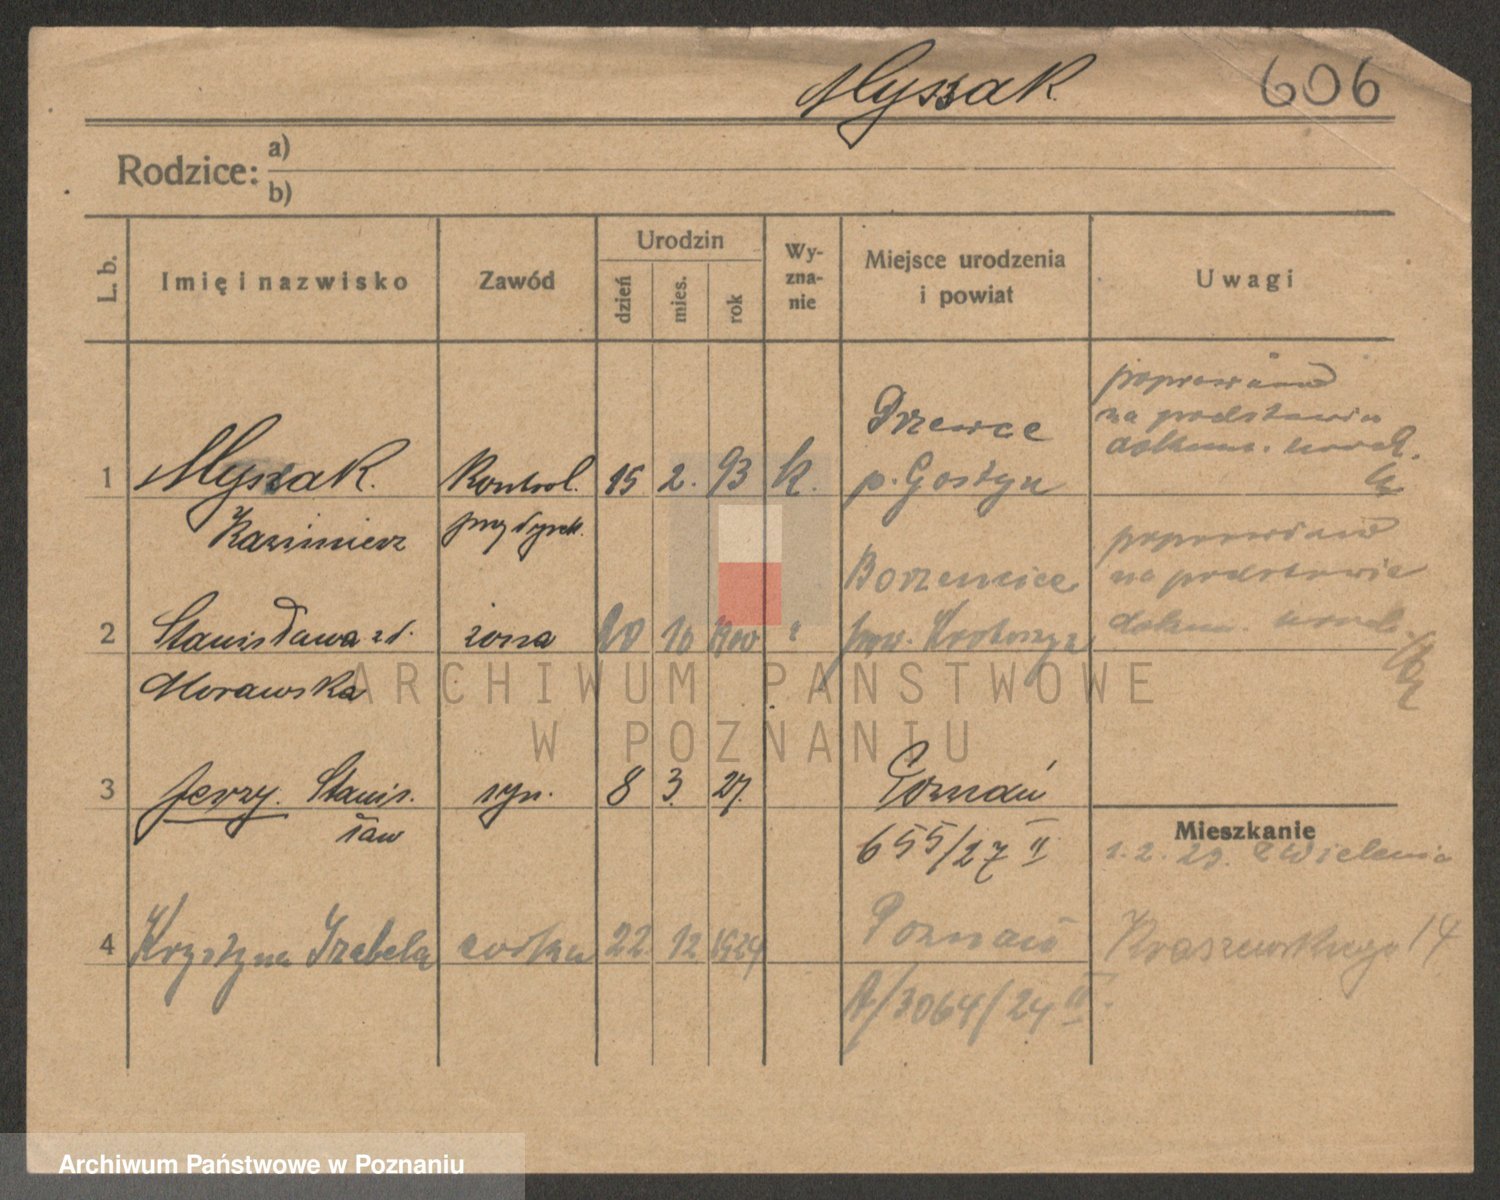 Myszak 606
Rodzice: a)
b)
L. b. Imię i nazwisko Zawód Urodzin dzień mies. rok Wy-zna-nie Miejsce urodzenia i powiat Uwagi
poprawiano
na podstawie
dokum. urod.
Drzewce
1 Myszak Kontrol. 15 2. 93 k. p. Gostyn
Kazimierz przy dyrek.
poprawiano
na podstawie
dokum. urod.
Borzencice
2 Stanisława zd. żona 20 10 1900 pow. Krotoszyn
Morawska
ARCHIWUM PAŃSTWOWE
W POZNANIU
3 Jerzy Stanis. syn. 8 3. 27. Poznań
ław 655/27 II
Mieszkanie
1. 2. 29. z Wielenia
4 Krystyna Izabela córka 22. 12 1924 Poznań Kraszewskiego 14
A/3064/24 II.
Archiwum Państwowe w Poznaniu